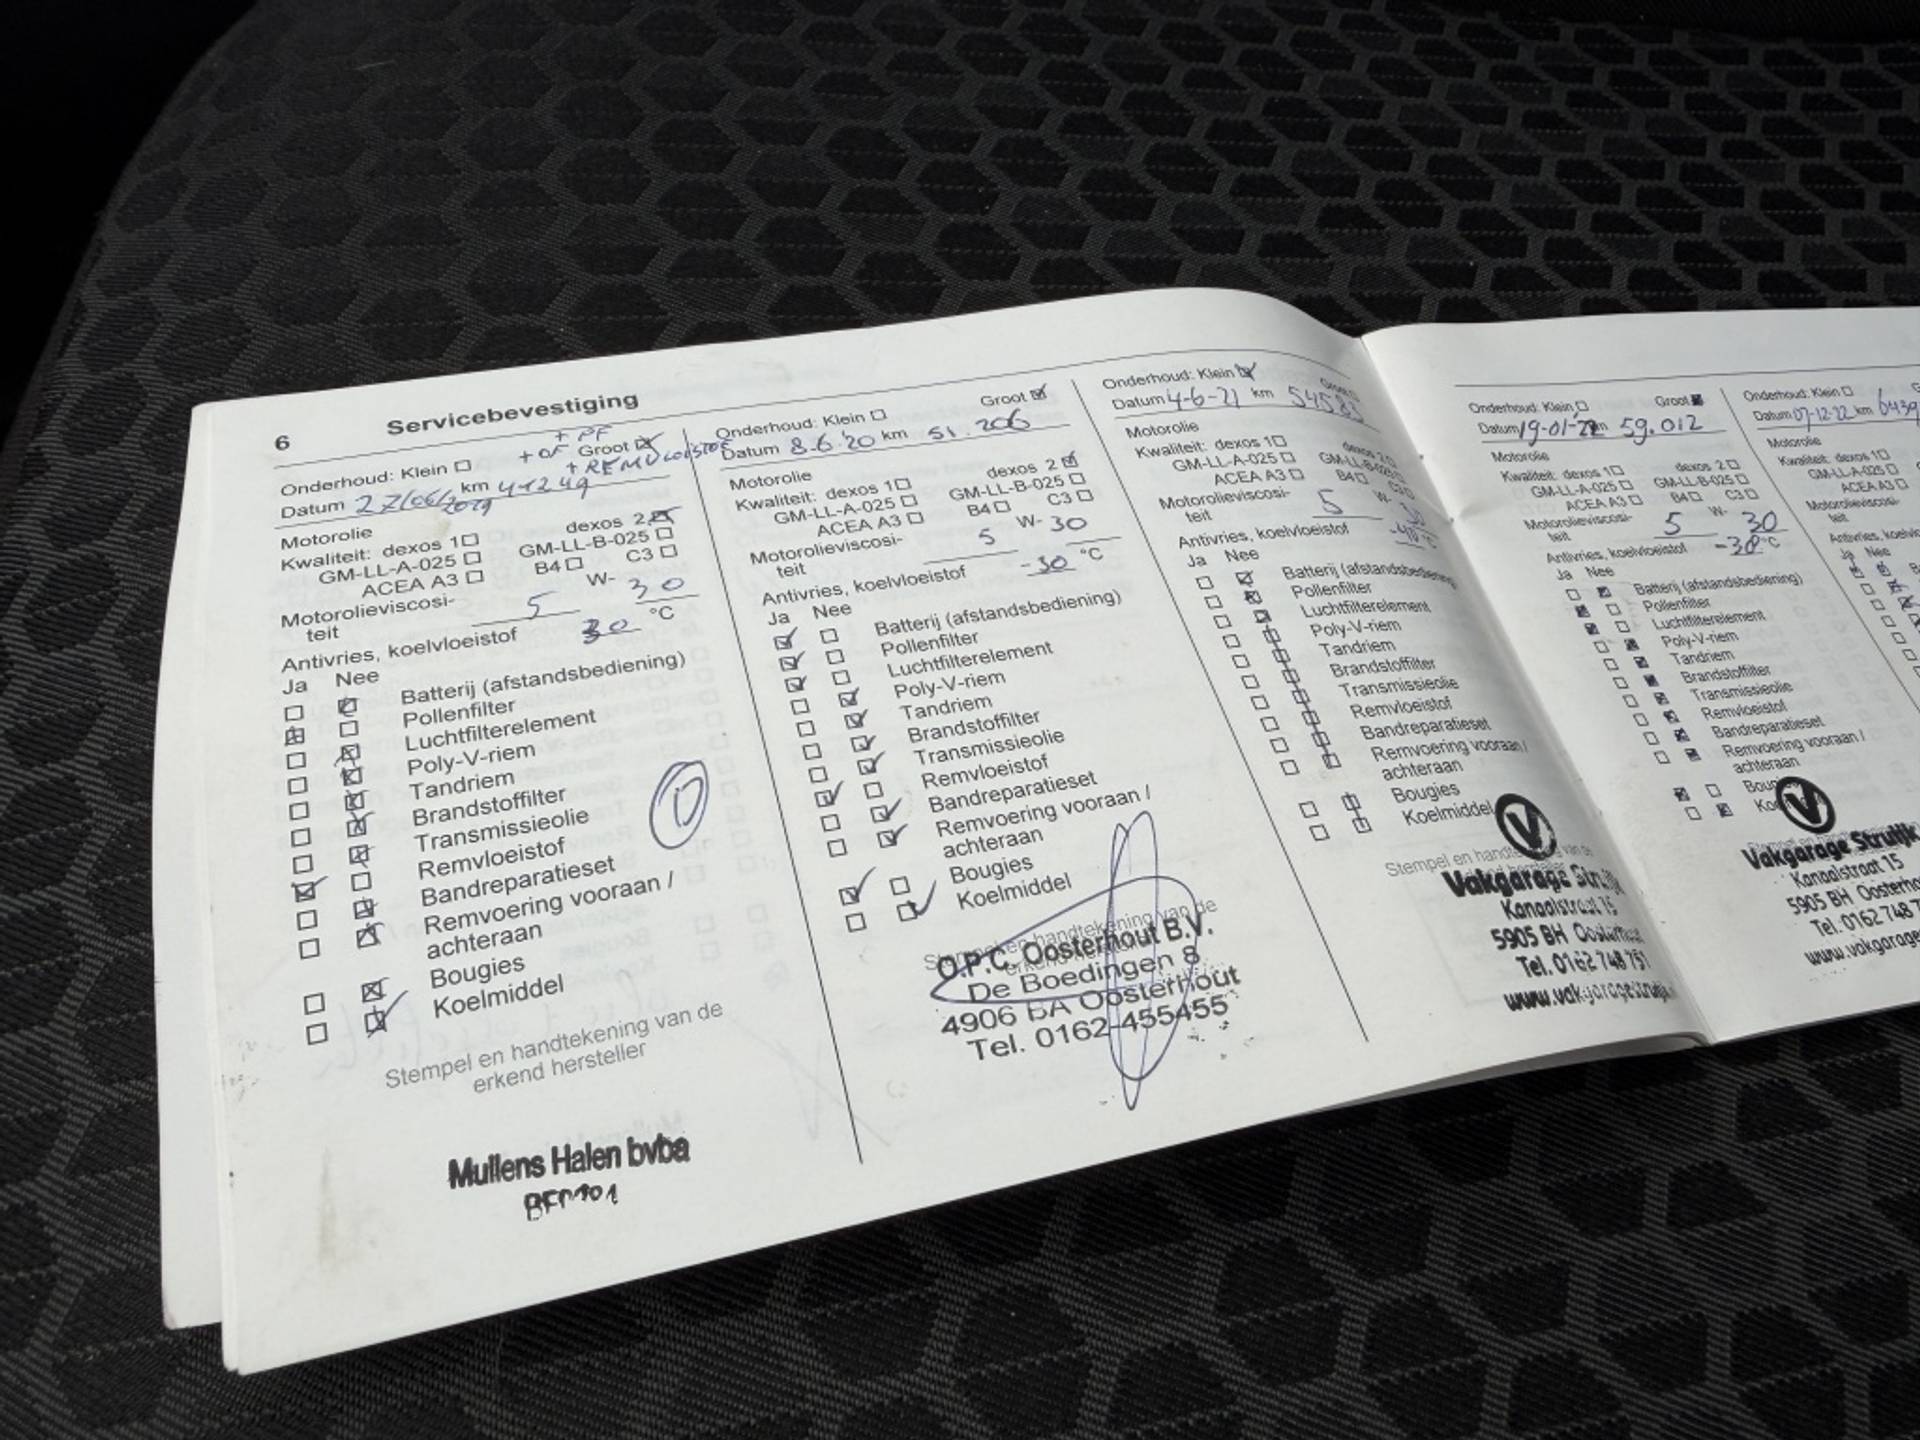 6 Servicebevestiging
+ PF
+ OF
Onderhoud: Klein Groot
+ REMVLOEISTOF
Datum 27/06/2019 km 41249
Motorolie
Kwaliteit: dexos 1 dexos 2
GM-LL-A-025 GM-LL-B-025
ACEA A3 B4 C3
Motorolieviscosi-
teit 5 W- 30
Antivries, koelvloeistof 30 °C
Ja Nee
Batterij (afstandsbediening)
Pollenfilter
Luchtfilterelement
Poly-V-riem
Tandriem
Brandstoffilter
Transmissieolie
Remvloeistof
Bandreparatieset
Remvoering vooraan /
achteraan
Bougies
Koelmiddel
Stempel en handtekening van de
erkend hersteller
Mullens Halen bvba
Onderhoud: Klein Groot
Datum 8-6-'20 km 51.206
Motorolie
Kwaliteit: dexos 1 dexos 2
GM-LL-A-025 GM-LL-B-025
ACEA A3 B4 C3
Motorolieviscosi-
teit 5 W- 30
Antivries, koelvloeistof -30 °C
Ja Nee
Batterij (afstandsbediening)
Pollenfilter
Luchtfilterelement
Poly-V-riem
Tandriem
Brandstoffilter
Transmissieolie
Remvloeistof
Bandreparatieset
Remvoering vooraan /
achteraan
Bougies
Koelmiddel
Stempel en handtekening van de
erkend
O.P.C. Oosterhout B.V.
De Boedingen 8
4906 BA Oosterhout
Tel. 0162-455455
Onderhoud: Klein Groot
Datum 4-6-21 km 54583
Motorolie
Kwaliteit: dexos 1 dexos 2
GM-LL-A-025 GM-LL-B-025
ACEA A3 B4 C3
Motorolieviscosi-
teit 5 W- 30
Antivries, koelvloeistof -40 °C
Ja Nee
Batterij (afstandsbediening)
Pollenfilter
Luchtfilterelement
Poly-V-riem
Tandriem
Brandstoffilter
Transmissieolie
Remvloeistof
Bandreparatieset
Remvoering vooraan /
achteraan
Bougies
Koelmiddel
Stempel en handtekening van de
Vakgarage Struijk
Kanaalstraat 15
5905 BH Oosterhout
Tel. 0162 748 751
www.vakgaragestruijk
Onderhoud: Klein Groot
Datum 19-01-22 km 59.012
Motorolie
Kwaliteit: dexos 1 dexos 2
GM-LL-A-025 GM-LL-B-025
ACEA A3 B4 C3
Motorolieviscosi-
teit 5 W- 30
Antivries, koelvloeistof -30 °C
Ja Nee
Batterij (afstandsbediening)
Pollenfilter
Luchtfilterelement
Poly-V-riem
Tandriem
Brandstoffilter
Transmissieolie
Remvloeistof
Bandreparatieset
Remvoering vooraan /
achteraan
Bougies
Vakgarage Struijk
Kanaalstraat 15
5905 BH Oosterho
Tel. 0162 748 7
www.vakgarage
Onderhoud: Klein
Datum 07-12-22 km
Motorolie
Kwaliteit: dexos 1
GM-LL-A-025
ACEA A3
Motorolieviscosi-
teit
Ja Nee